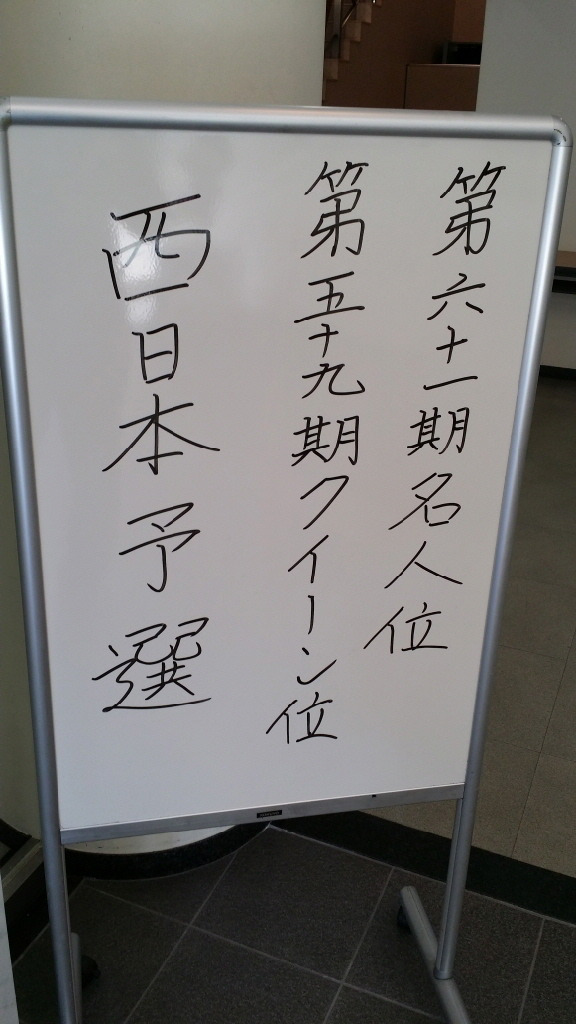 第六十一期名人位
第五十九期クイーン位
西日本予選